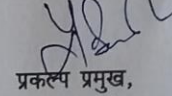 प्रकल्प प्रमुख,